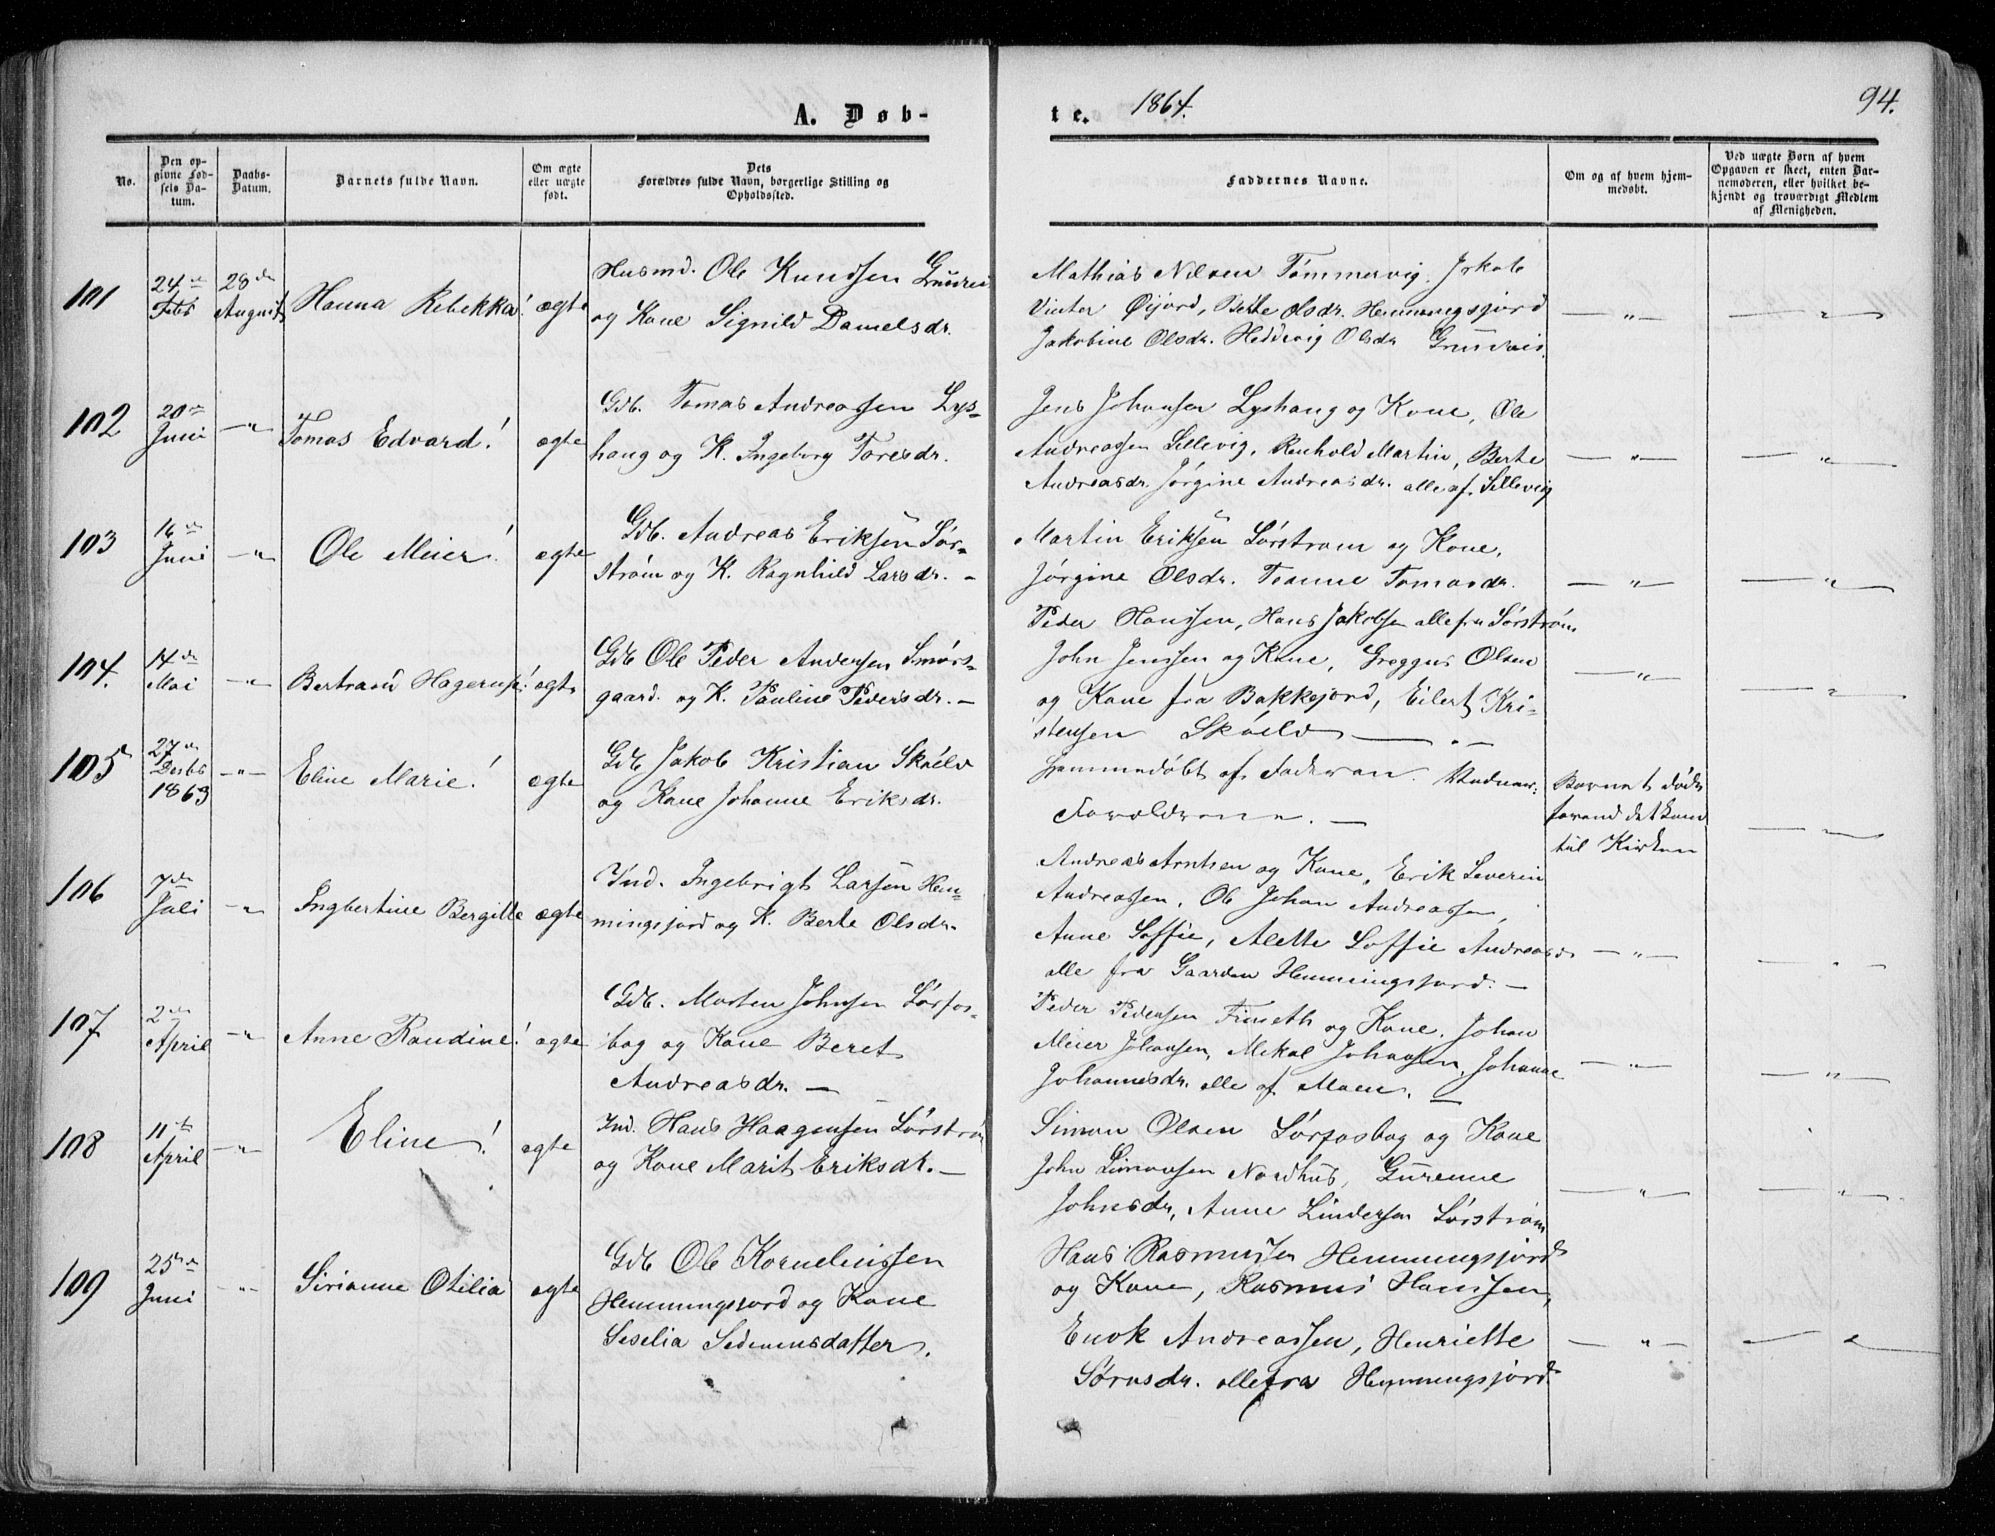 A. Døb-
te. 1864. 94.
No.
Den op-
givne Fød-
sels Da-
tum.
Daabs-
Datum.
Barnets fulde Navn.
Om ægte
eller uægte
født.
Dets
Forældres fulde Navn, borgerlige Stilling og
Opholdssted.
Faddernes Navne.
Om og af hvem hjem-
medøbt.
Ved uægte Børn af hvem
Opgaven er skeet, enten Bar-
nemoderen, eller hvilket be-
kjendt og troværdigt Medlem
af Menigheden.
101
24de
Febr
28de
August
Hanna Rebekka!
ægte
Husmd. Ole Knudsen
og Kone Signild Danielsdr.
Mathias Nilsen Tømmervig. Jakob
Vinter Øijord, Berte Olsdr. Hemmingsjord
Jakobine Olsdr. Heddevig Olsdr
— " —
— " —
102
20de
Juni
— " —
Tomas Edvard!
ægte
Gdb. Tomas Andreassen Lys-
haug og K. Ingeborg Toresdr.
Jens Johansen Lyshaug og Kone, Ole
Andreassen Sillevig, Renhold Martin, Berte
Andreasdr. Jørgine Andreasdr. alle af Sillevig
— " —
— " —
103
16de
Juni
— " —
Ole Meier!
ægte
Gdb. Andreas Eriksen Sør-
strøm og K. Ragnhild Larsdr. —
Martin Eriksen Sørstrøm og Kone,
Jørgine Olsdr. Tomasdr.
Peder Hanssen, Hans Jakobsen alle fra Sørstrøm
— " —
— " —
104.
14de
Mai
— " —
Bertraud Hagerup!
ægte
Gdb Ole Peder Andersen Smørs-
gaard. og K. Pauline Pedersdr. —
John Jenssen og Kone, Greggus Olsen
og Kone fra Bakkejord, Eilert Kri-
stensen Skøelv — " —
— " —
— " —
105
27de
Desbr
1863
— " —
Eline Marie!
ægte
Gdb Jakob Kristian Skøelv
og Kone Johanne Eriksdr.
Hjemmedøbt af Faderen.
Forældrene. —
Barnet døde
forend det kom
til Kirken
— " —
106
7de
Juli
— " —
Ingbertine Bergitte
ægte
Ind. Ingebrigt Larsen Hem-
mingsjord og K. Berte Olsdr.
Andreas Arntsen og Kone, Erik Severin
Andreassen, Ole Johan Andreassen,
Anne Soffie, Alette Soffie Andreasd
alle fra Gaarden Hemmingsjord. —
— " —
— " —
107
2den
April
— " —
Anne Randine!
ægte
Gdb. Morten Johnsen Sørfos-
bag og Kone Beret
Andreasdr. —
Peder Pedersen Finseth og Kone. Johan
Meier Johansen, Mekal Johansen, Johanne
Johannesdr. alle af Moen. —
— " —
— " —
108
11te
April
— " —
Eline!
ægte
Ind. Hans Haagensen Sørstrøm
og Kone Marit Eriksdr. —
Simon Olsen Sørfosbag og Kone
John Simonsen Nordhus, Gurenne
Johnsdr, Anne Lindersen Sørstrøm
— " —
— " —
109
25de
Juni
— " —
Sirianne Otilia
ægte
Gdb Ole Korneliussen
Hemmingsjord og Kone
Seselia Sedenensdatter.
Hans Rasmussen Hemmingsjord
og Kone, Rasmus Hanssen,
Enok Andreassen, Henriette
Sørnsdr. alle fra Hemmingsjord.
— " —
— " —